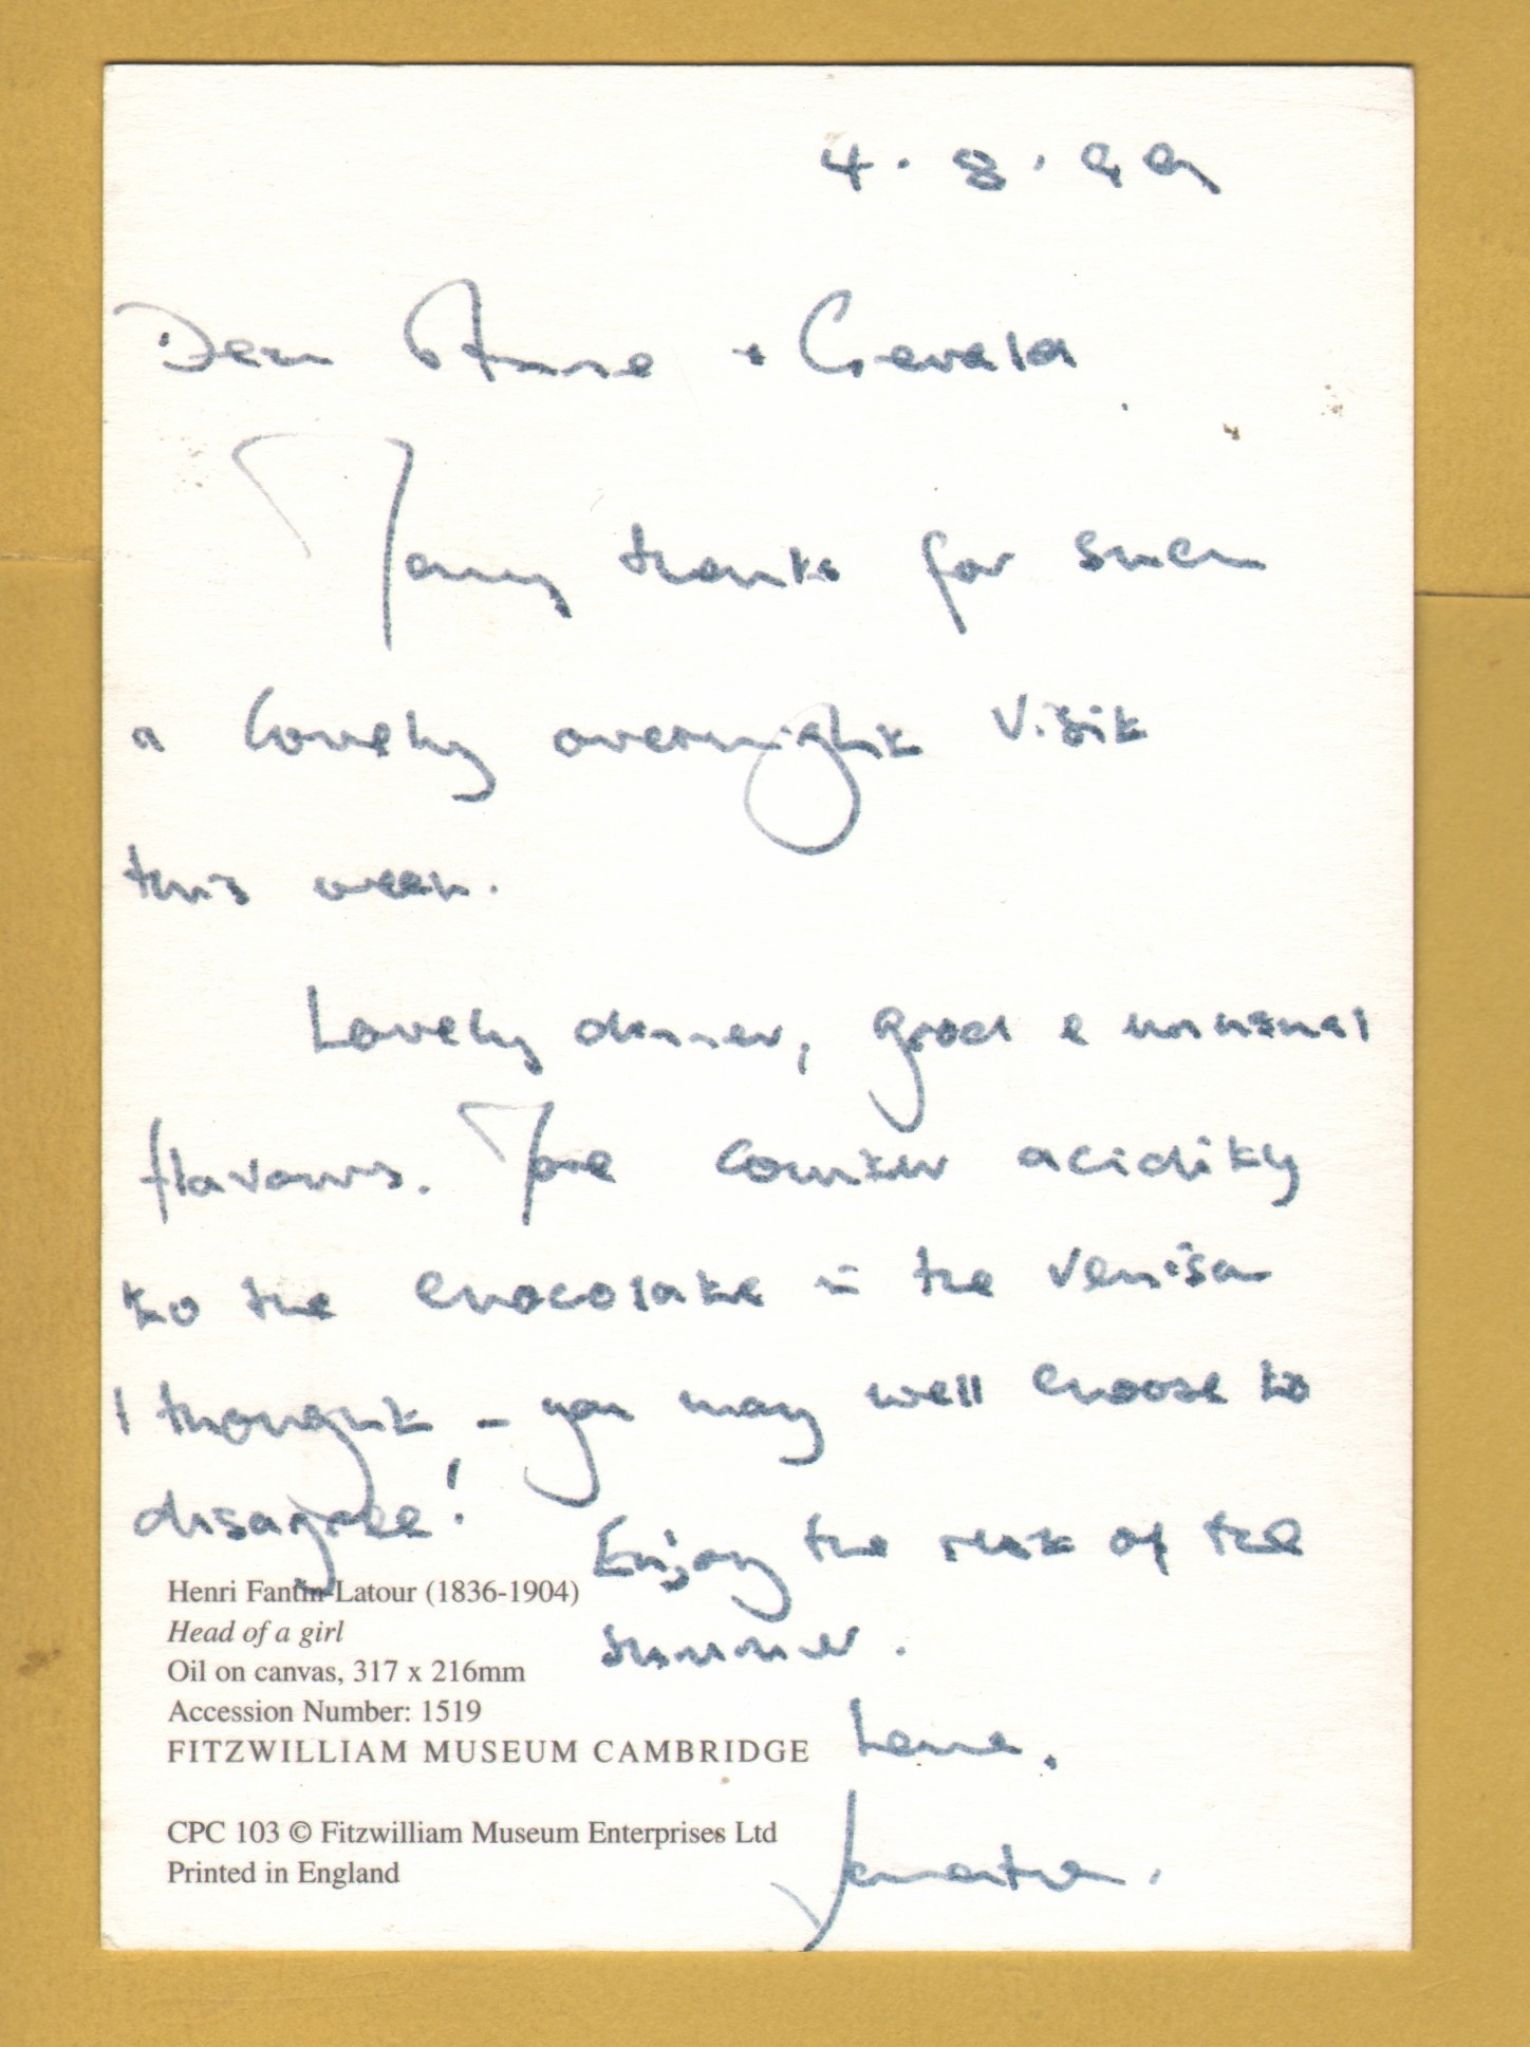 4.8.99
Dear Anne + Gerald
Many thanks for such
a lovely overnight visit
this week.
Lovely dinner, good & unusual
flavours. More counter acidity
to the chocolate in the venison
I thought - you may well choose to
disagree!
Enjoy the rest of the
summer.
Henri Fantin-Latour (1836-1904)
Head of a girl
Oil on canvas, 317 x 216mm
Accession Number: 1519
FITZWILLIAM MUSEUM CAMBRIDGE
Love,
Jonathan.
CPC 103 © Fitzwilliam Museum Enterprises Ltd
Printed in England